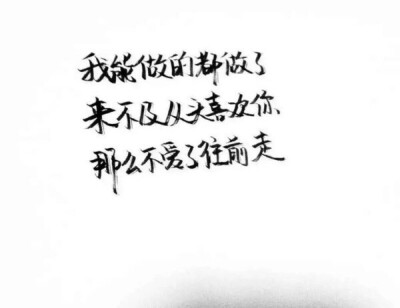 我能做的都做了
来不及从头喜欢你
那么不爱了往前走